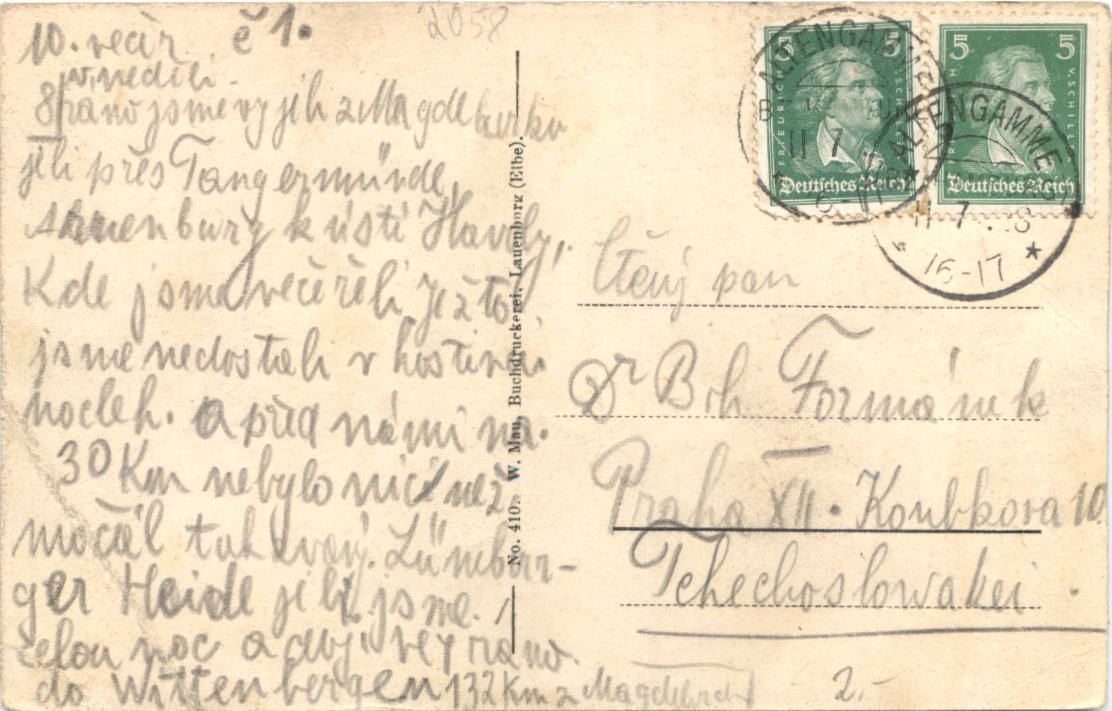 10. večír č 1.
2058
v neděli
8/ráno jsme vyjeli z Magdeburku
jeli přes Tangermünde,
k ústí Havoly,
Kde jsme večeřeli. Jež to
jsme nedostali v hostinci
nocleh. a před námi na.
30 Km nebylo nic než
močál tak zvaný. Lünebur-
ger Heide jeli jsme.
celou noc a dojeli ráno.
do Wittenbergen 132 Km z Magdeburku
No. 410. W. Mau, Buchdruckerei, Lauenburg (Elbe).
5 5
FRIEDRICH V. SCHILLER
Deutsches Reich
5 5
V. SCHILLER
Deutsches Reich
ALTENGAMME
11 7
ALTENGAMME
11 7 . 28
16-17
Ctěný pan
Dr Boh Formánek
Praha XII. Koubkova 10
Tchechoslowakei.
2.-